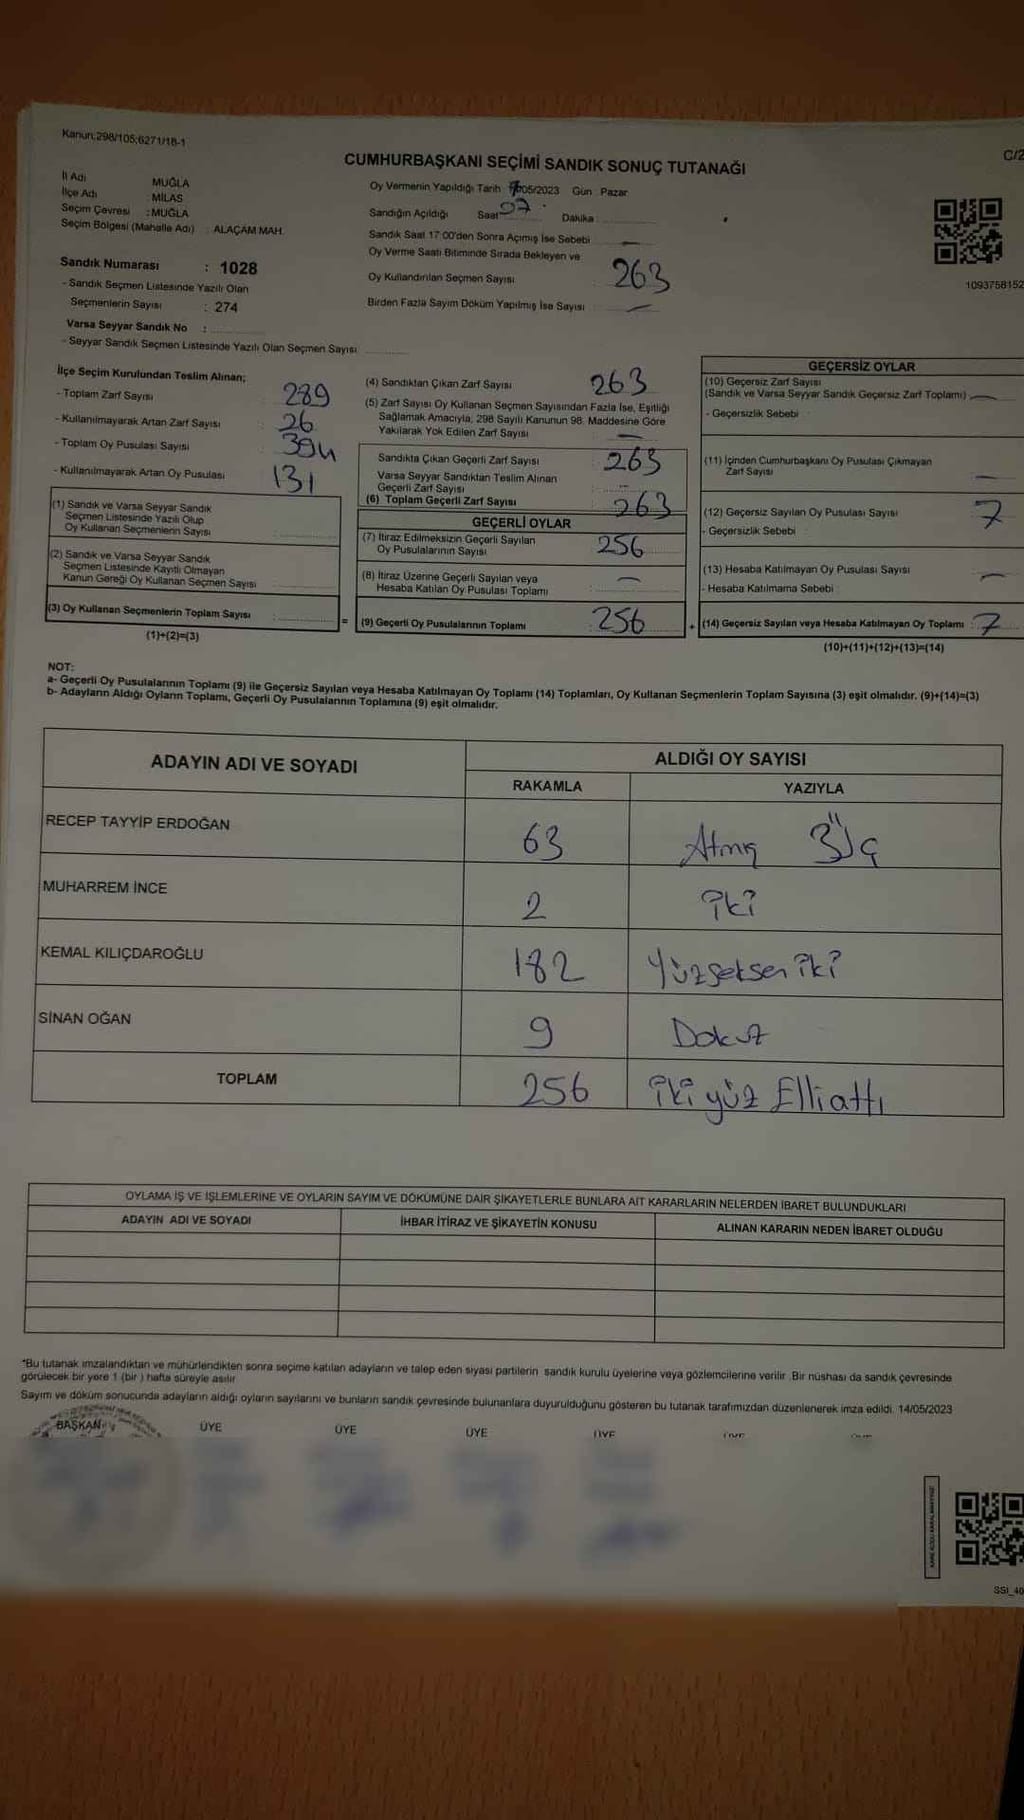 Kanun:298/105;6271/18-1
C/2
CUMHURBAŞKANI SEÇİMİ SANDIK SONUÇ TUTANAĞI
İl Adı MUĞLA
İlçe Adı MİLAS
Seçim Çevresi : MUĞLA
Seçim Bölgesi (Mahalle Adı) : ALAÇAM MAH.
Sandık Numarası : 1028
- Sandık Seçmen Listesinde Yazılı Olan
Seçmenlerin Sayısı : 274
Varsa Seyyar Sandık No :
- Seyyar Sandık Seçmen Listesinde Yazılı Olan Seçmen Sayısı
Oy Vermenin Yapıldığı Tarih 05/2023 Gün : Pazar
Sandığın Açıldığı Saat 07 Dakika
Sandık Saat 17:00'den Sonra Açımış İse Sebebi —
Oy Verme Saati Bitiminde Sırada Bekleyen ve
Oy Kullandırılan Seçmen Sayısı : 263
Birden Fazla Sayım Döküm Yapılmış İse Sayısı —
1093758152
İlçe Seçim Kurulundan Teslim Alınan;
- Toplam Zarf Sayısı : 289
- Kullanılmayarak Artan Zarf Sayısı : 26
- Toplam Oy Pusulası Sayısı : 394
- Kullanılmayarak Artan Oy Pusulası : 131
(1) Sandık ve Varsa Seyyar Sandık
Seçmen Listesinde Yazılı Olup
Oy Kullanan Seçmenlerin Sayısı
(2) Sandık ve Varsa Seyyar Sandık
Seçmen Listesinde Kayıtlı Olmayan
Kanun Gereği Oy Kullanan Seçmen Sayısı
(3) Oy Kullanan Seçmenlerin Toplam Sayısı :
(1)+(2)=(3)
(4) Sandıktan Çıkan Zarf Sayısı 263
(5) Zarf Sayısı Oy Kullanan Seçmen Sayısından Fazla İse, Eşitliği
Sağlamak Amacıyla; 298 Sayılı Kanunun 98. Maddesine Göre
Yakılarak Yok Edilen Zarf Sayısı —
Sandıkta Çıkan Geçerli Zarf Sayısı 263
Varsa Seyyar Sandıktan Teslim Alınan
Geçerli Zarf Sayısı
(6) Toplam Geçerli Zarf Sayısı 263
GEÇERLİ OYLAR
(7) İtiraz Edilmeksizin Geçerli Sayılan
Oy Pusulalarının Sayısı 256
(8) İtiraz Üzerine Geçerli Sayılan veya
Hesaba Katılan Oy Pusulası Toplamı —
= (9) Geçerli Oy Pusulalarının Toplamı : 256
GEÇERSİZ OYLAR
(10) Geçersiz Zarf Sayısı
(Sandık ve Varsa Seyyar Sandık Geçersiz Zarf Toplamı) —
- Geçersizlik Sebebi
(11) İçinden Cumhurbaşkanı Oy Pusulası Çıkmayan
Zarf Sayısı —
(12) Geçersiz Sayılan Oy Pusulası Sayısı 7
- Geçersizlik Sebebi
(13) Hesaba Katılmayan Oy Pusulası Sayısı —
- Hesaba Katılmama Sebebi
+ (14) Geçersiz Sayılan veya Hesaba Katılmayan Oy Toplamı : 7
(10)+(11)+(12)+(13)=(14)
NOT:
a- Geçerli Oy Pusulalarının Toplamı (9) ile Geçersiz Sayılan veya Hesaba Katılmayan Oy Toplamı (14) Toplamları, Oy Kullanan Seçmenlerin Toplam Sayısına (3) eşit olmalıdır. (9)+(14)=(3)
b- Adayların Aldığı Oyların Toplamı, Geçerli Oy Pusulalarının Toplamına (9) eşit olmalıdır.
ADAYIN ADI VE SOYADI ALDIĞI OY SAYISI
RAKAMLA YAZIYLA
RECEP TAYYİP ERDOĞAN 63 Atmış Üç
MUHARREM İNCE 2 iki
KEMAL KILIÇDAROĞLU 182 Yüzseksen iki
SİNAN OĞAN 9 Dokuz
TOPLAM 256 iki yüz Elliattı
OYLAMA İŞ VE İŞLEMLERİNE VE OYLARIN SAYIM VE DÖKÜMÜNE DAİR ŞİKAYETLERLE BUNLARA AİT KARARLARIN NELERDEN İBARET BULUNDUKLARI
ADAYIN ADI VE SOYADI İHBAR İTİRAZ VE ŞİKAYETİN KONUSU ALINAN KARARIN NEDEN İBARET OLDUĞU
*Bu tutanak imzalandıktan ve mühürlendikten sonra seçime katılan adayların ve talep eden siyasi partilerin sandık kurulu üyelerine veya gözlemcilerine verilir. Bir nüshası da sandık çevresinde
görülecek bir yere 1 (bir ) hafta süreyle asılır
Sayım ve döküm sonucunda adayların aldığı oyların sayılarını ve bunların sandık çevresinde bulunanlara duyurulduğunu gösteren bu tutanak tarafımızdan düzenlenerek imza edildi. 14/05/2023
BAŞKAN ÜYE ÜYE ÜYE ÜYE
SSI_40